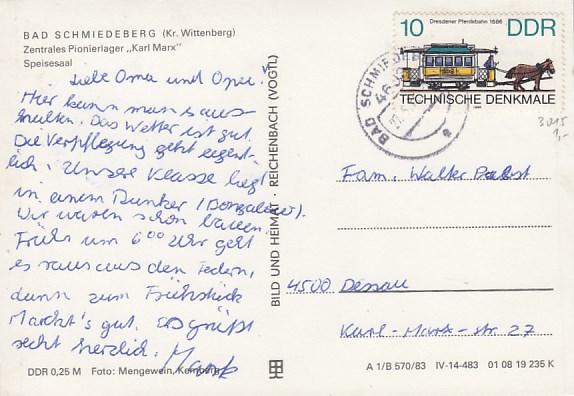 BAD SCHMIEDEBERG (Kr. Wittenberg)
Zentrales Pionierlager „Karl Marx"
Speisesaal
Liebe Oma und Opa!
Hier kann man's aus-
halten. Das Wetter ist gut.
Die Verpflegung geht eigent-
lich. Unsere Klasse liegt
in einem Bunker (Bungalow).
Wir waren schon baden.
Früh um 6 00 Uhr geht
es raus aus den Federn,
dann zum Frühstück
Macht's gut. Es grüßt
recht herzlich.
DDR 0,25 M Foto: Mengewein, Kemberg
BILD UND HEIMAT · REICHENBACH (VOGTL)
Dresdener Pferdebahn 1886
10 DDR
TECHNISCHE DENKMALE
BAD SCHMIEDEBERG
3015
1,-
Fam. Walter Pabst
4500 Dessau
Karl-Marx-Str. 27
A 1/B 570/83 IV-14-483 01 08 19 235 K